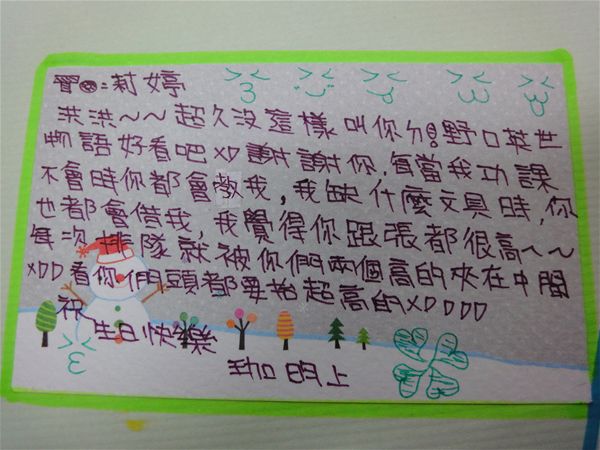 :莉婷
洪洪~~超久沒這樣叫你ㄉ!野口英世
物語好看吧XD謝謝你,每當我功課
不會時你都會教我,我缺什麼文具時,你
也都會借我,我覺得你跟張都很高~~
每次排隊就被你們兩個高的夾在中間
XDD看你們頭都要抬超高的XDDDD
祝
生日快樂
珈明上